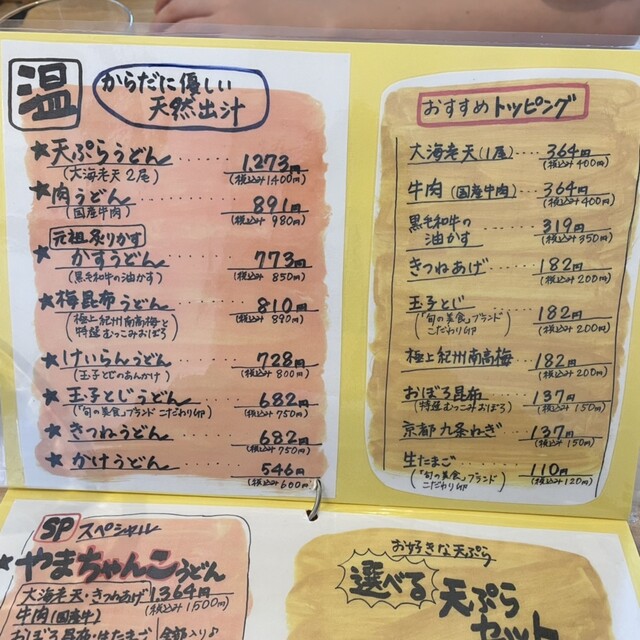 温
からだに優しい
天然出汁
★天ぷらうどん ・・・・・・ 1,273円
(大海老天 2尾) (税込み1400円)
★肉うどん ・・・・・・ 891円
(国産牛肉) (税込み 980円)
元祖炙りかす
★かすうどん ・・・・・・ 773円
(黒毛和牛の油かす) (税込み 850円)
★梅昆布うどん ・・・・・・ 810円
(極上紀州南高梅と (税込み 890円)
特選むっつこみおぼろ)
★けいらんうどん ・・・・・・ 728円
(玉子とじのあんかけ) (税込み 800円)
★玉子とじうどん ・・・・・・ 682円
(「旬の美食」ブランド こだわり卵) (税込み750円)
★きつねうどん ・・・・・・ 682円
(税込み750円)
★かけうどん ・・・・・・ 546円
(税込み600円)
おすすめトッピング
大海老天(1尾) ・・・・ 364円
(税込み400円)
牛肉 (国産牛肉) ・・・・ 364円
(税込み400円)
黒毛和牛の
油かす ・・・・ 319円
(税込み350円)
きつねあげ ・・・・ 182円
(税込み200円)
玉子とじ ・・・・ 182円
(「旬の美食」ブランド
こだわり卵) (税込み200円)
極上紀州南高梅 ・・・・ 182円
(税込み200円)
おぼろ昆布 ・・・・ 137円
(特選むっつこみおぼろ) (税込み150円)
京都 九条ねぎ ・・・・ 137円
(税込み150円)
生たまご ・・・・ 110円
(「旬の美食」ブランド
こだわり卵) (税込み120円)
SP スペシャル
★やまちゃんこうどん
大海老天・きつねあげ 1,364円
牛肉(国産牛) (税込み1,500円)
おぼろ昆布・はたまご 全部入り♪
お好きな天ぷら
選べる
天ぷら
セット